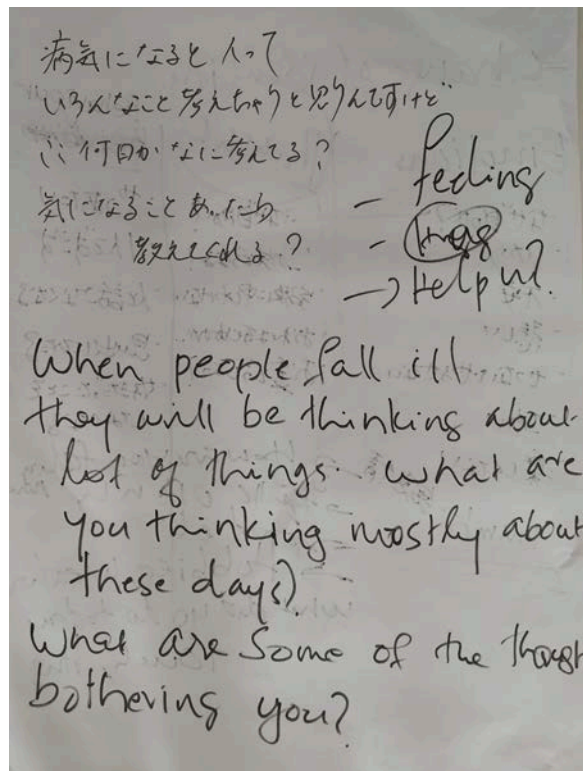 病気になると人って
いろんなこと考えちゃうと思うんですけど
ここ何日かなに考えてる?
気になることあったら
教えてくれる?
- feeling
-
→ Helpful?
When people fall ill
they will be thinking about
lot of things. What are
you thinking mostly about
these days?
What are some of the though
bothering you?